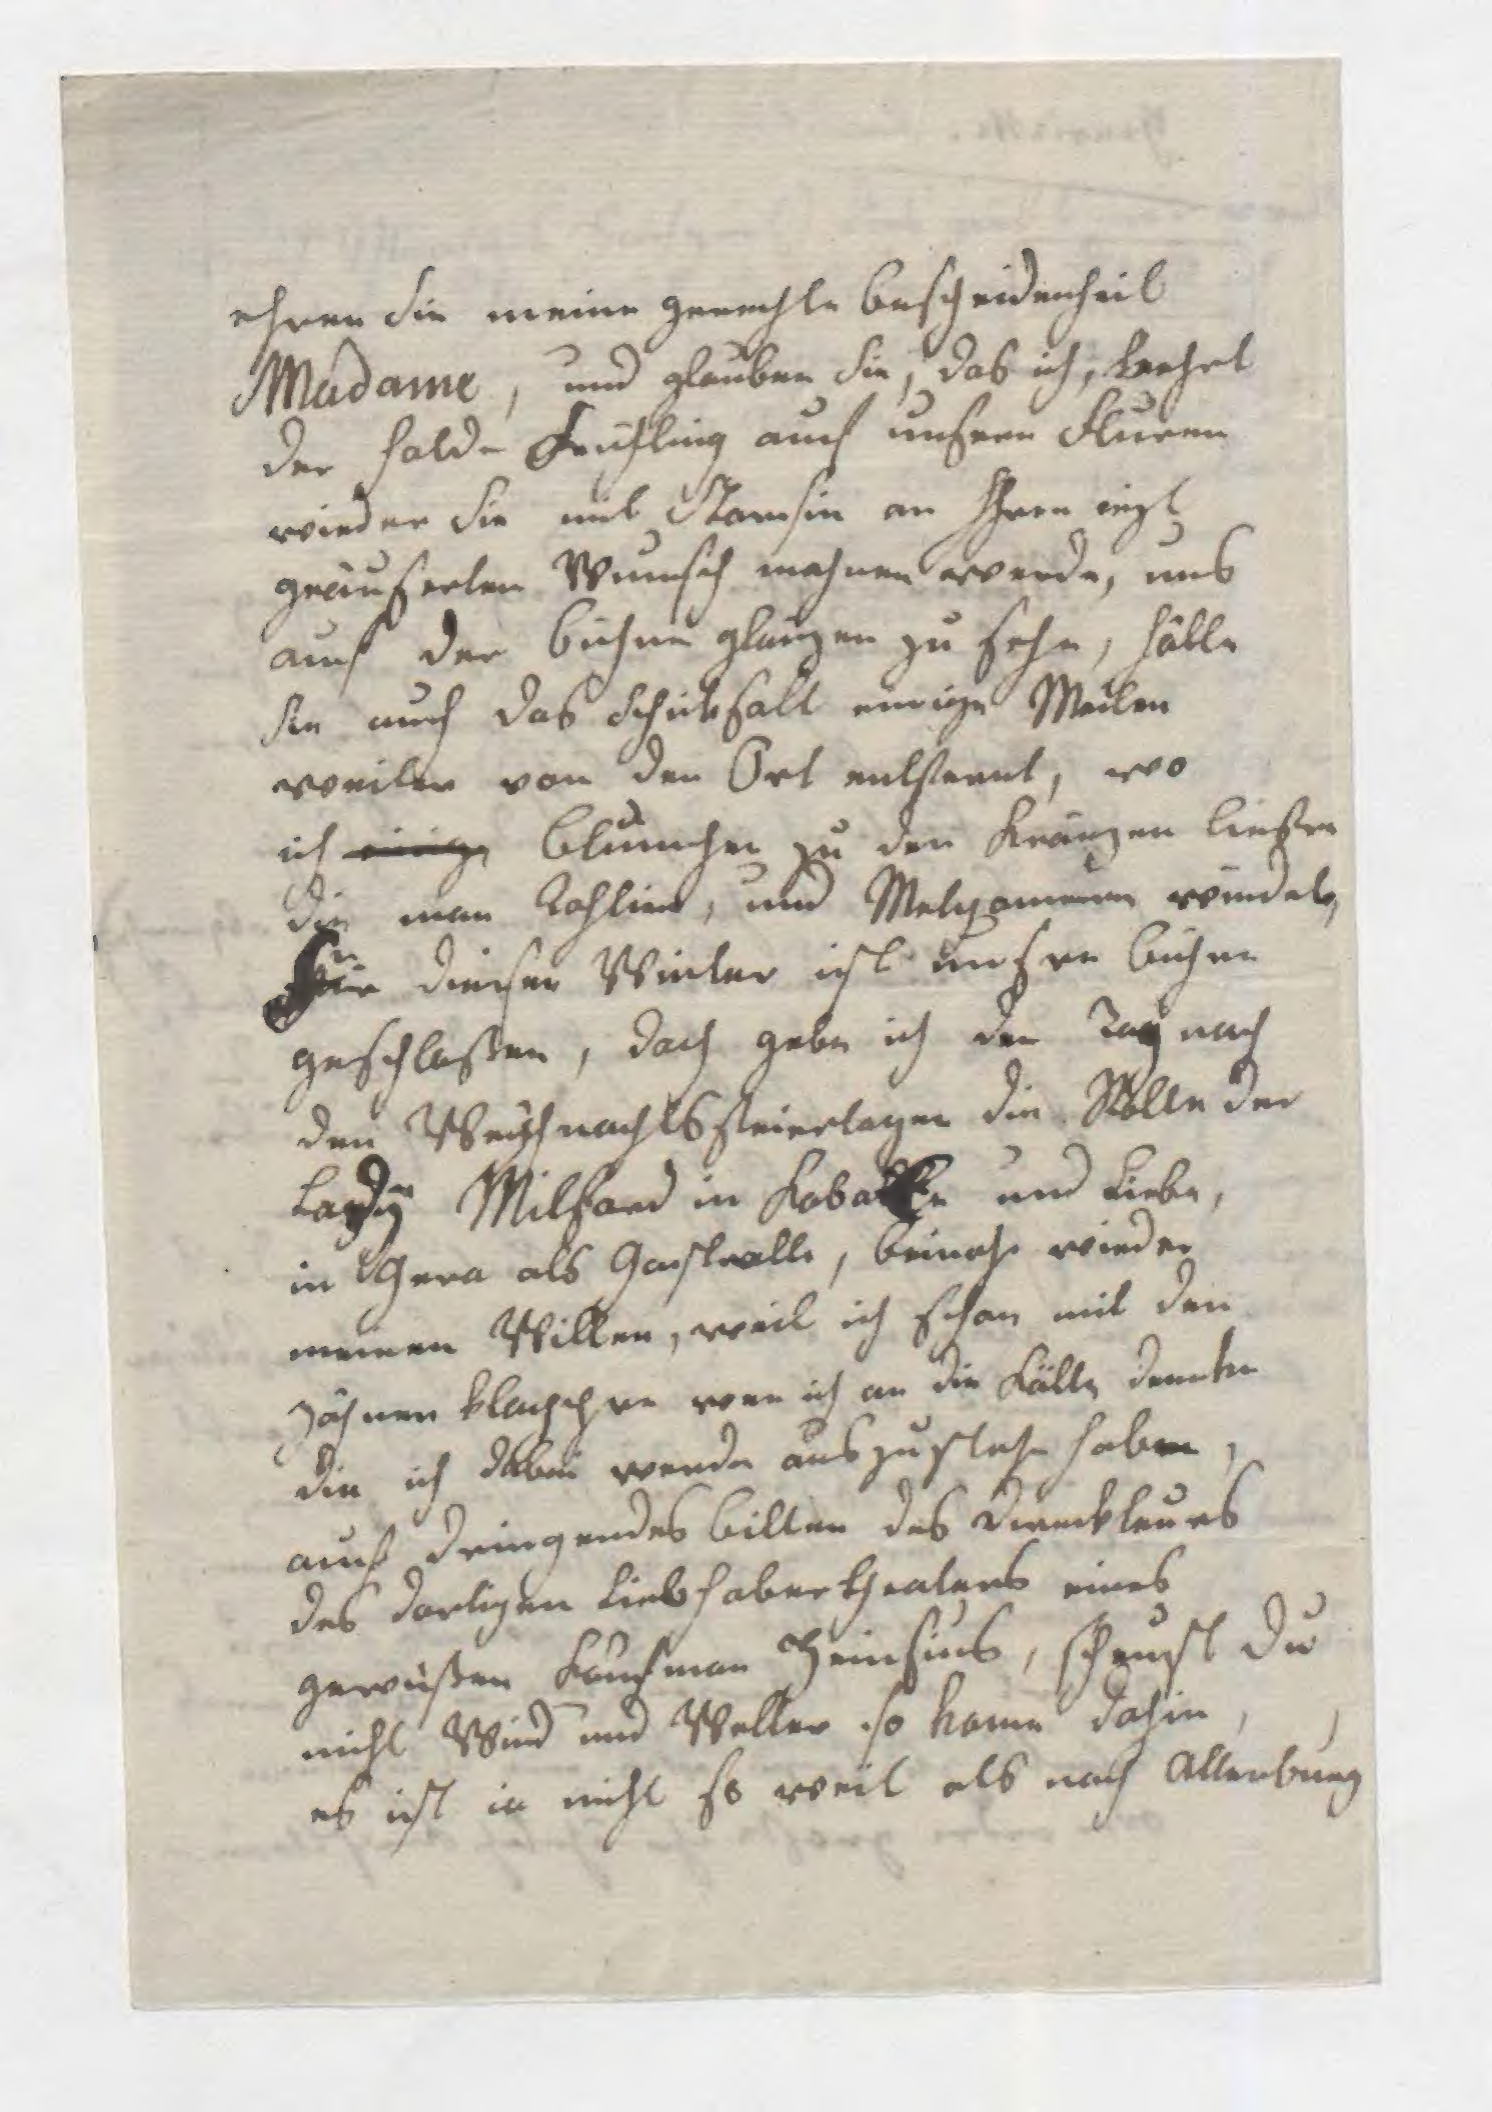 ehren Sie meine gerechte bescheidenheit
Madame, und glauben Sie, das ich, kehrt
der holde Frühling auch unsern Fluren
wieder Sie mit an Ihren iezt
geäuserten Wunsch mahnen werde, uns
auf der bühne glänzen zu sehn, hätte
sie auch das Schiksall einige Meilen
weiter von den Ort entfernt, wo
ich einige blümchen zu den Kränzen ließre
die man Tahlien, und Melpomenen windet,
Für diesen Winter ist unsre bühne
geschlossen, doch gebe ich den Tag nach
den Weihnachtsfeiertagen die Rolle der
Lady Milford in Kabale und Liebe,
in Gera als Gastrolle, beinahe wieder
meinen Willen, weil ich schon mit den
Zähnen klappre wen ich an die Kälte dencke
die ich dabei werde auszustehe haben,
auf dringendes bitten des Direkteurs
des dortigen Liebhabertheaters eines
gewissen Kaufman Heinsius, scheust Du
nicht Wind und Wetter so kome dahin,
es ist ia nicht so weit als nach Altenburg